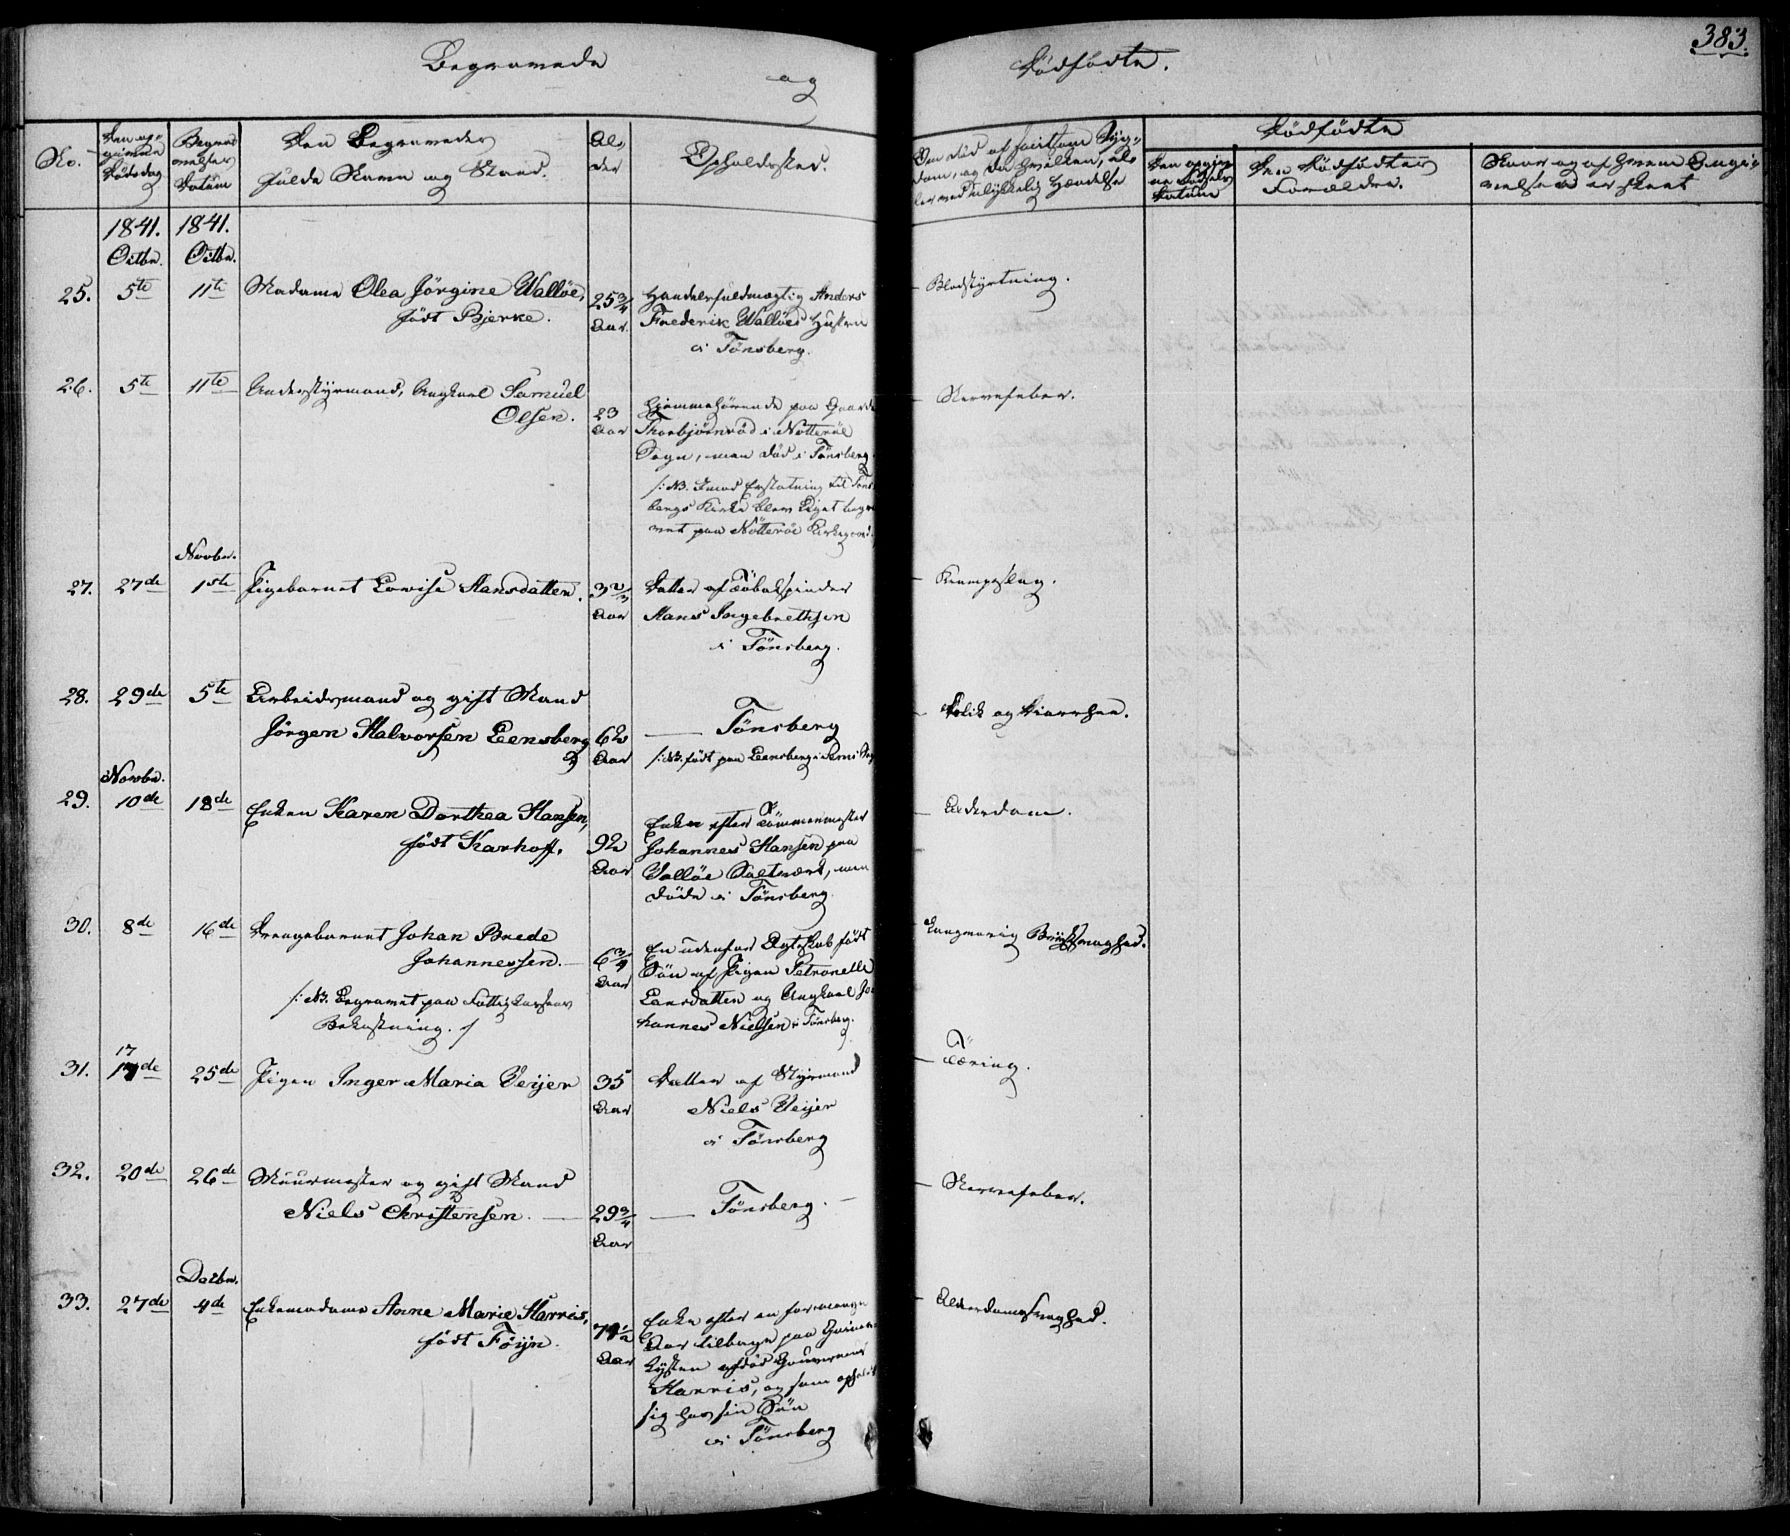 383.
Begravede
og
Dødfødte.
No.
Den op-
givne
Dødsdag
Begra-
velses
Datum
Den Begravedes
fulde Navn og Stand.
Al-
der
Opholdssted.
Om død af smitsom Syg-
dom, og da hvilken, el-
ler ved ulykkelig Hændelse
Dødfødte
Den opgiv-
ne Fødsels
Datum
Den Dødfødtes
Forældre.
Naar og af hvem Begra-
velsen er skeet
1841.
1841.
Octbr.
Octbr.
25.
5te
11te
Madame Olea Jørgine Walløe,
født Bjerke.
25 3/4
Aar.
Handelsfuldmægtig Anders
Frederik Walløes Hustru
i Tönsberg.
Blodstyrtning.
26.
5te
11te
Understyrmand, Ungkarl Samuel
Olsen.
23
Aar
Hjemmehørende paa Gaarde
Thorbjørnrød i Nötteröe
Sogn, men död i Tönsberg.
/: NB. Imod Erstatning til Töns
bergs Kirke blev Liget begra
vet paa Nötteröe Kirkegaard
Nervefeber.
Novbr.
27.
27de
1ste
Pigebarnet Lovise Hansdatter.
3 2/3
Aar
Datter af Tobakspinder
Hans Ingebrethsen
i Tönsberg.
Krampeslag.
28.
29de
5te
Arbeidsmand og gift Mand
Jørgen Halvorsen Leensberg
62
Aar
Tönsberg
/: NB. født paa Leensberg i Sems Sog
Kolik og Diarrhee.
Novbr.
29.
10de
18de
Enken Karen Dorthea Hansen,
født Karhoff.
92
Aar
Enke efter Tömmermester
Johannes Hansen paa
Valløe Saltværk, men
døde i Tönsberg
Alderdom.
30.
8de
16de
Drengebarnet Johan Brede
Johannessen.
/: NB. Begravet paa Fattigkassens
Bekostning. /
6 3/4
Aar
En udenfor Ægteskab født
Søn af Pigen Petronelle
Larsdatter og Ungkarl Jo
hannes Nielsen i Tönsberg.
Langvarig Brystsvaghed.
31.
17
17de
25de
Pigen Inger Maria Veijer
35
Aar
Datter af Styrmand
Niels Veijer
i Tönsberg
Tæring.
32.
20de
26de
Muurmester og gift Mand
Niels Christensen.
29 3/4
Aar
Tönsberg.
Nervefeber.
Decbr.
33.
27de
4de
Enkemadame Anne Marie Harris,
født Föijn.
74 1/2
Aar
Enke efter en for mange
Aar tilbage paa Guinea
Kysten afdød Gouverneur
Harris, og som opholdt
sig hos sin Søn
i Tönsberg
Alderdomssvaghed.